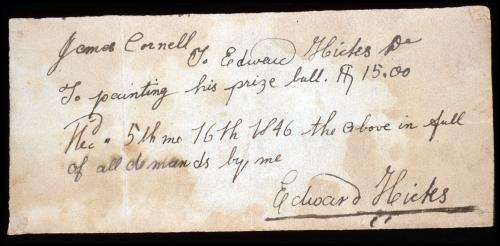 James Cornell
To Edward Hicks Dr
To painting his prize bull. $ 15.00
Rec'd 5th mo 16th 1846 the above in full
of all demands by me
Edward Hicks